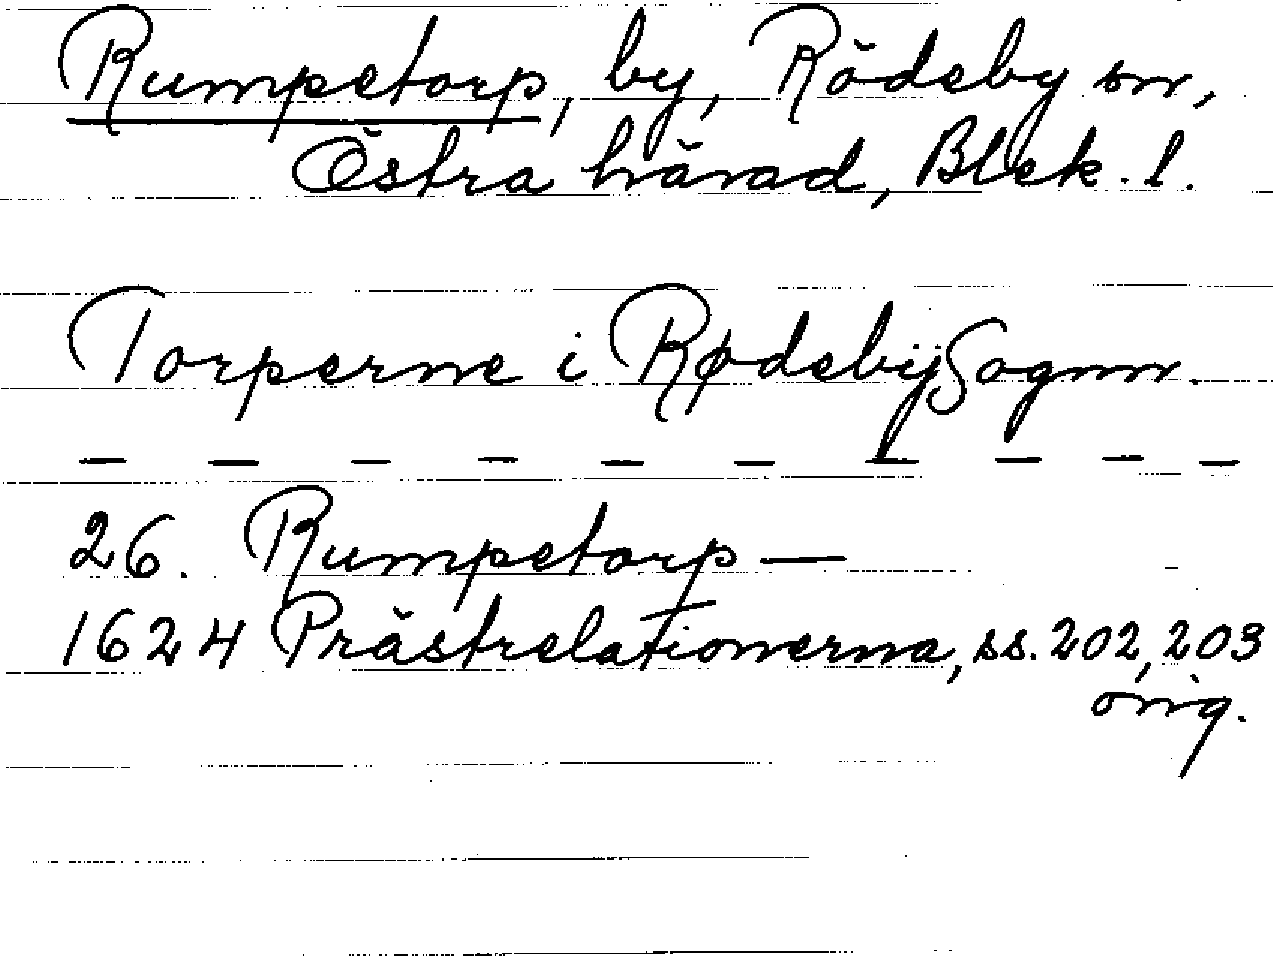 Rumpetorp, by, Rödeby sn,
Östra härad, Blek. l.
Torperne i Rødebÿ Sognn.
— — — — — — — — — —
26. Rumpetorp —
1624 Prästrelationerna, ss. 202, 203
orig.